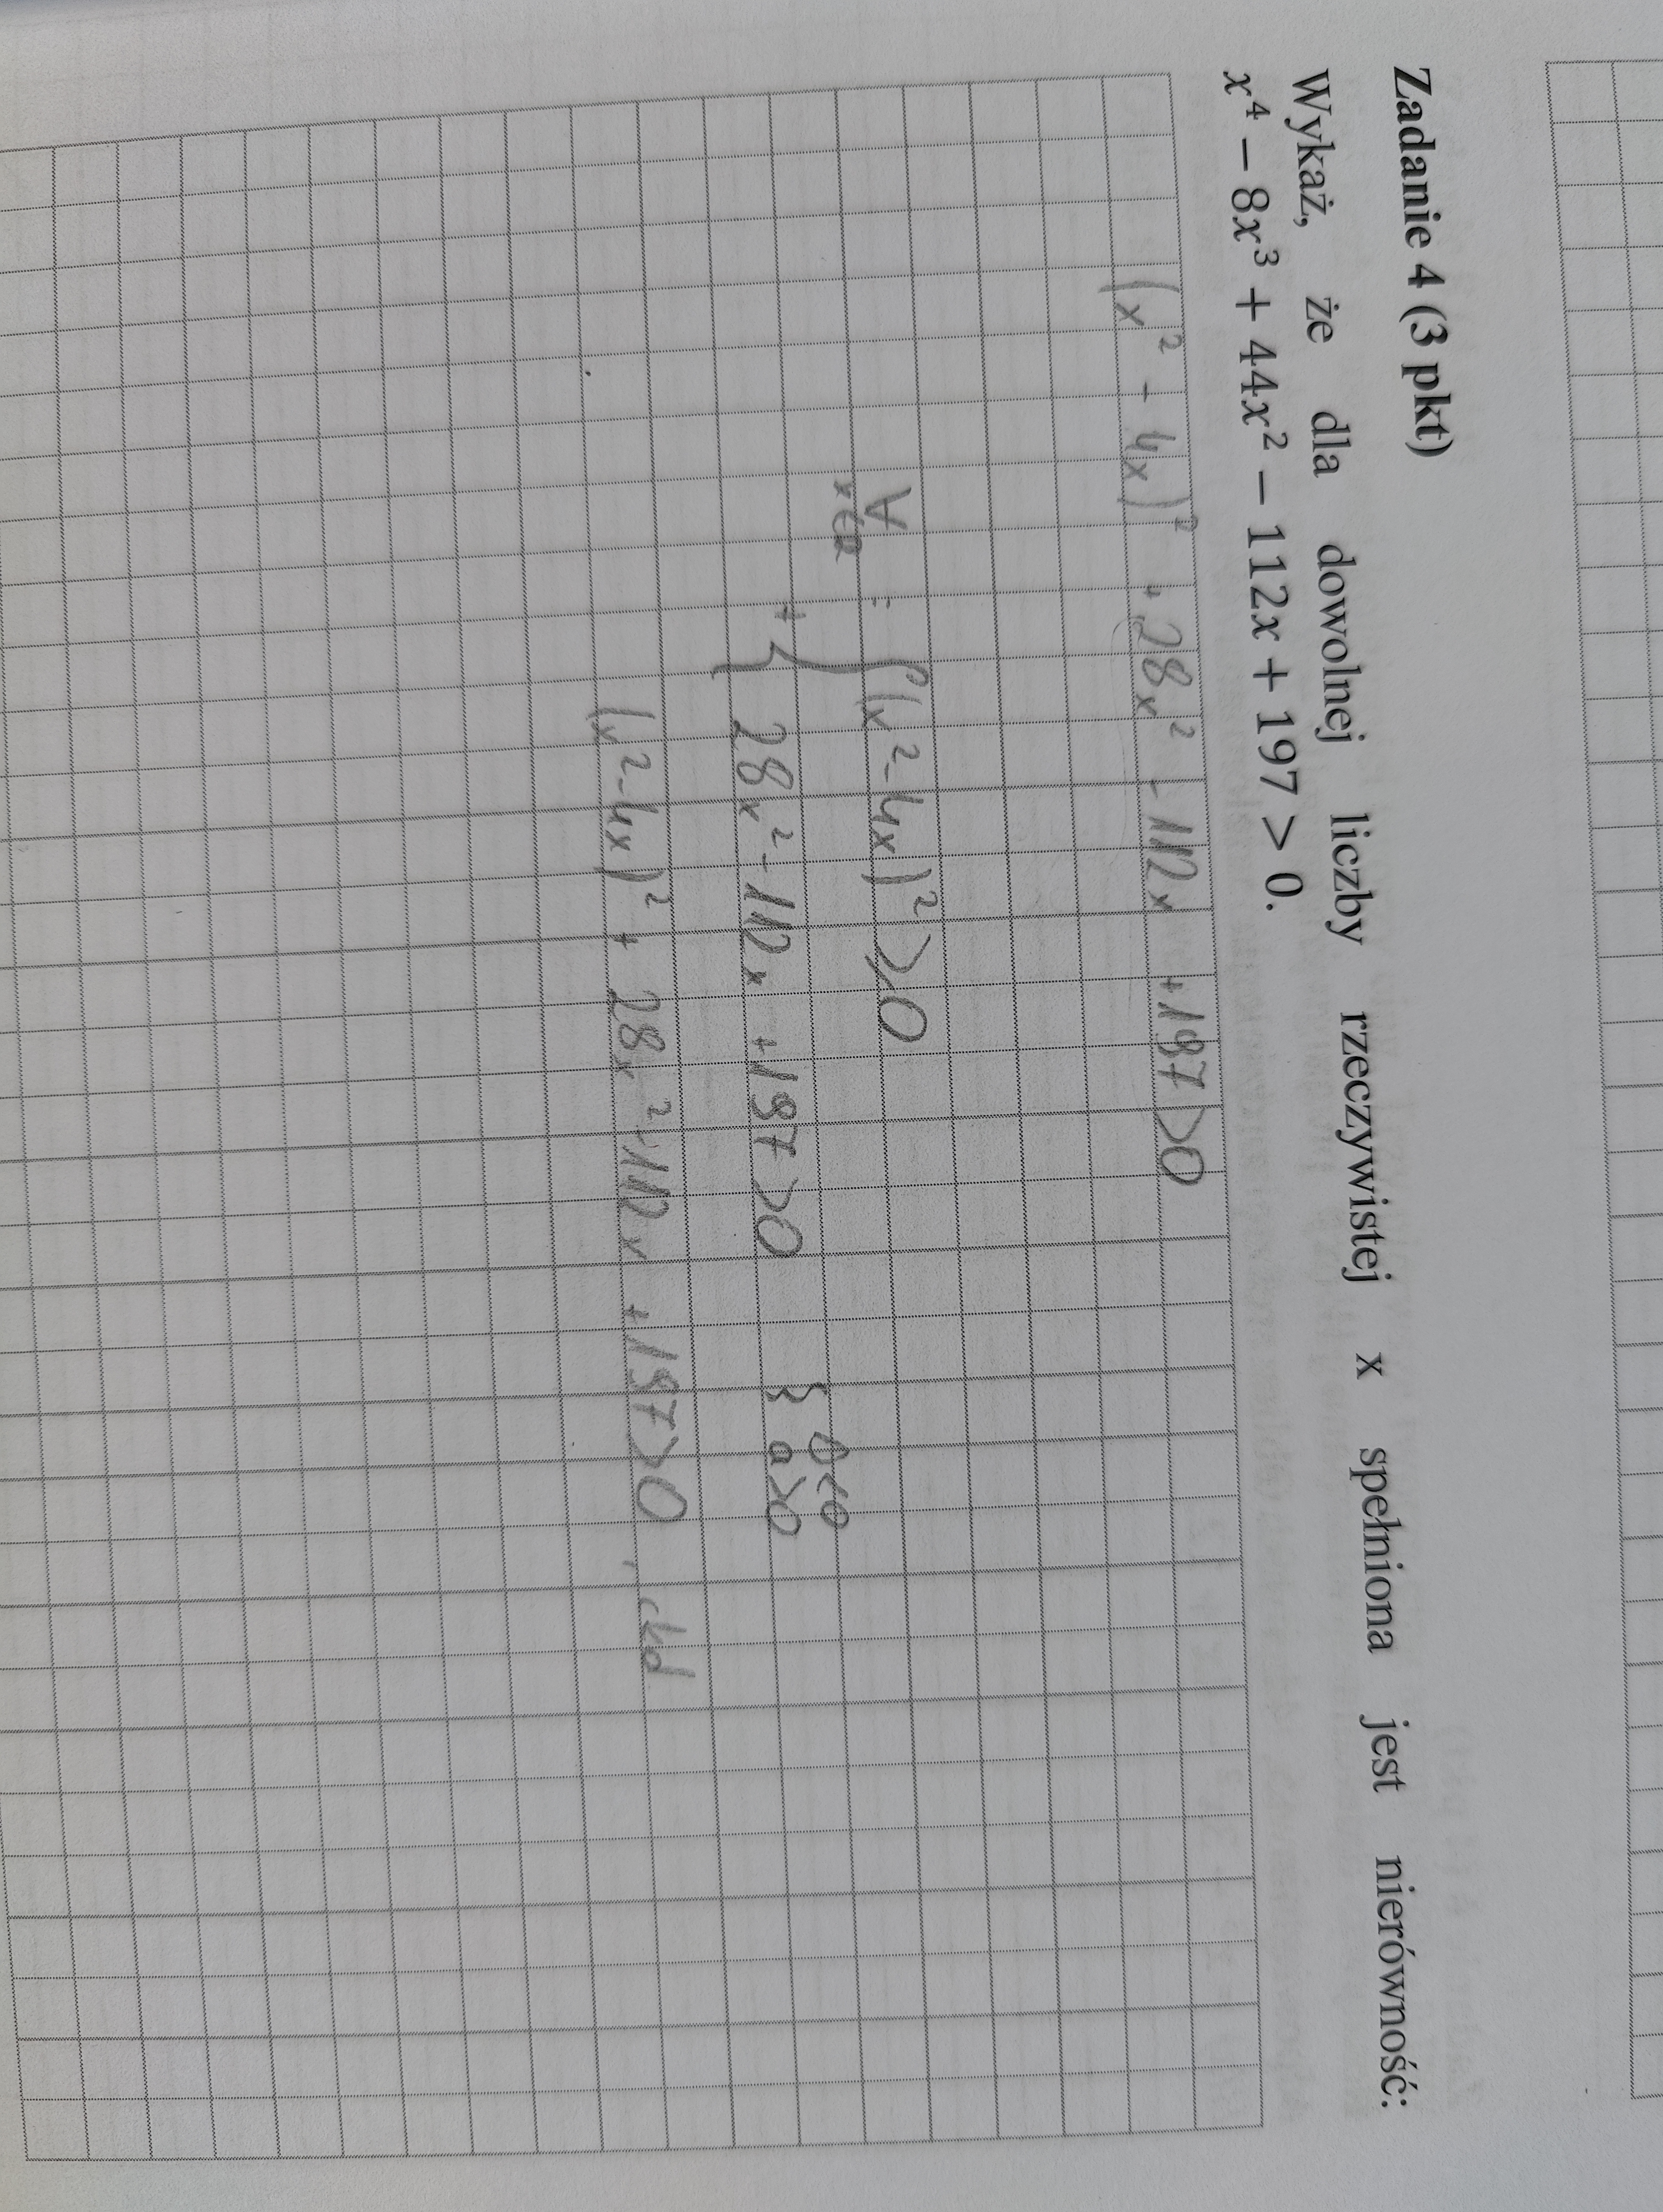 Zadanie 4 (3 pkt)
Wykaż, że dla dowolnej liczby rzeczywistej x spełniona jest nierówność:
x⁴ − 8x³ + 44x² − 112x + 197 > 0.
(x² - 4x)² + 28x² - 112x + 197 > 0
∀ x∈ℝ : (x² - 4x)² ⩾ 0
+ { 28x² - 112x + 197 > 0 { Δ<0
a>0
(x² - 4x)² + 28x² - 112x + 197 > 0 , ckd